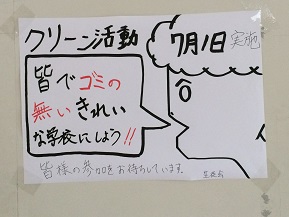 クリーン活動
7月1日 実施
皆でゴミの
無いきれい
な学校にしよう!!
皆様の参加をお待ちしています。
生徒会